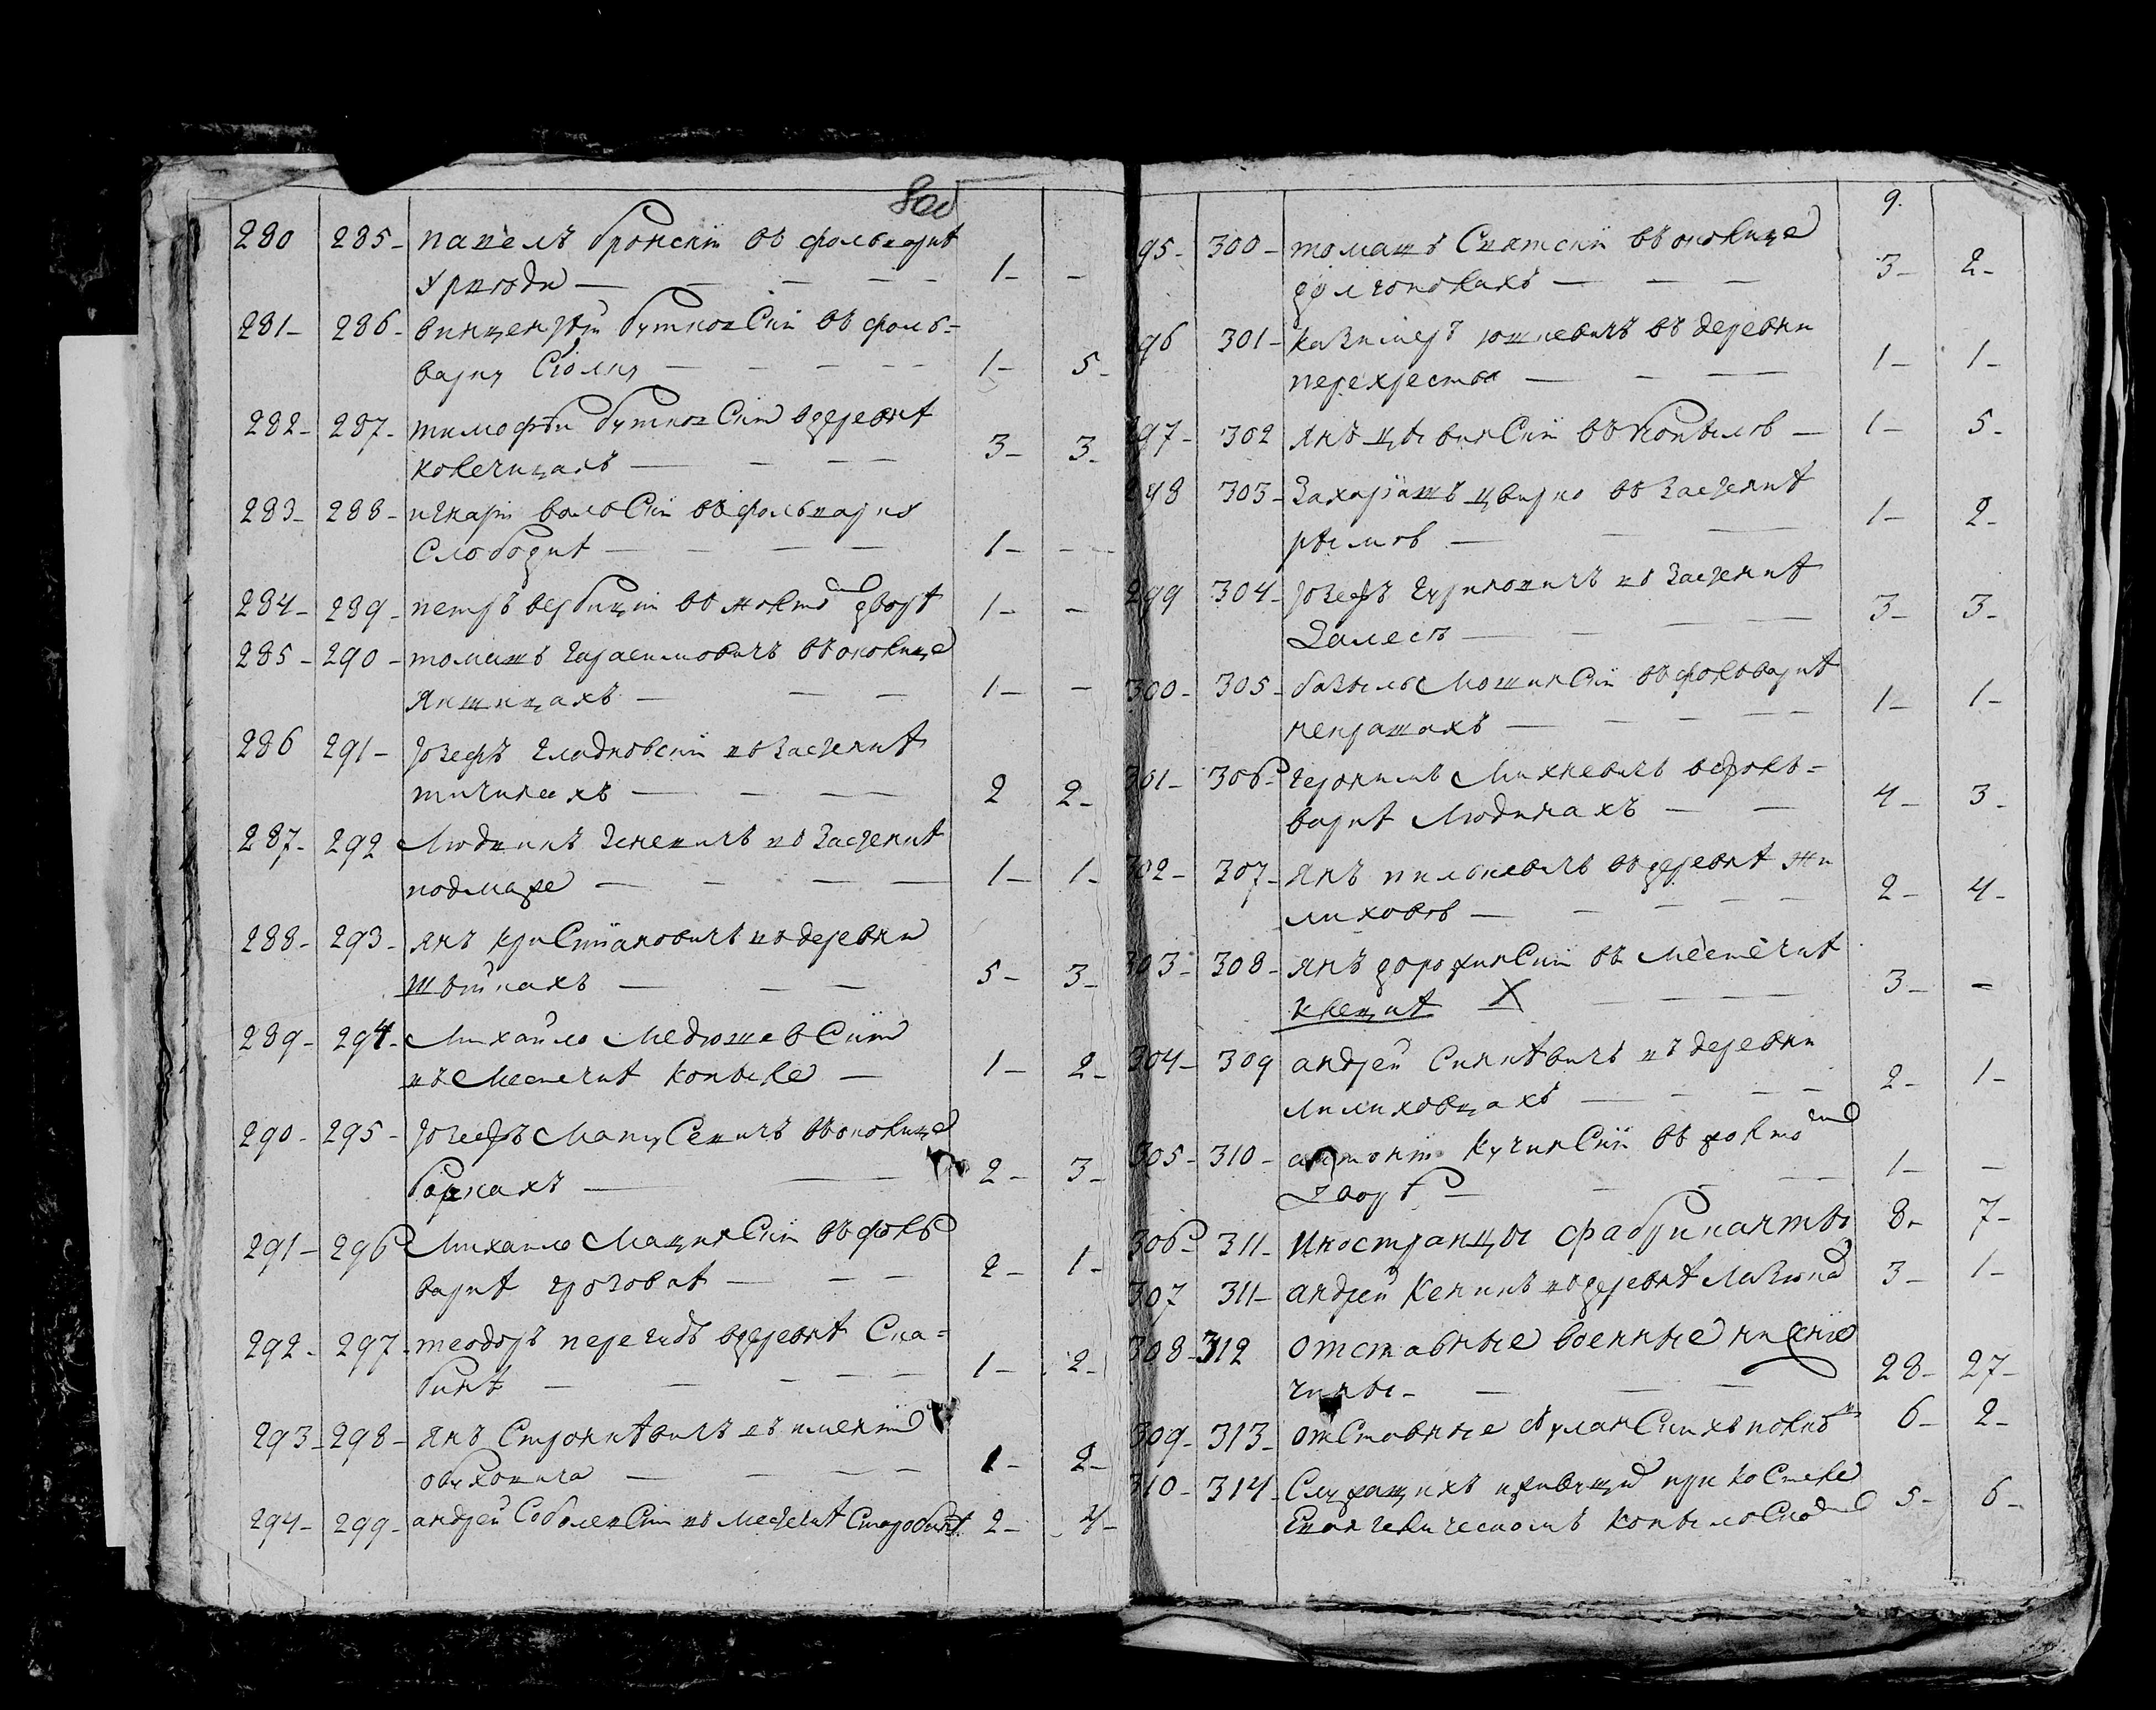 8об
280 285- павелъ бронскій въ фольваркѣ
Уриводи — — — — 1- -
281- 286- винцентій бутковскій въ фоль-
варку Сіолку — — — — 1- 5-
282- 287- тимофѣй бутковскій вдеревнѣ
ковечицахъ — — — 3- 3-
283- 288- игнатій вольскій въ фольварку
Слободкѣ — — — — 1- -
284- 289- петръ вербицкій въ жолто дворѣ 1- -
285- 290- томашъ Гарасимовичъ въ околице
Якшицахъ — — — 1- -
286 291- Іозефъ Гладковскій въ Застенкѣ
тычинахъ — — — 2 2-
287- 292 Людвикъ въ Застенкѣ
подмаже — — — — 1- 1-
288- 293- янъ Кристіановичъ въ деревни
шыйкахъ — — — 5- 3-
289- 294- Михайло Медюшевскій
въ Местечкѣ Копыле — 1- 2-
290- 295- Іозефъ Мацусевичъ въ околице
боркахъ — — — 2- 3-
291- 296 Михайло Мацинскій въ фоль
варкѣ грозовѣ — — — 2- 1-
292- 297- теодоръ перегудъ вдеревнѣ Ска-
бинѣ — — — — — 1- 2-
293- 298- янъ Стронитвичъ въ именіи
обуховича — — — — 1- 2-
294- 299- андрей Соболевскій въ Местечкѣ Старобинѣ 2- 4-
9.
95- 300- томашъ Снятскій въ околице
долгоновкахъ — — — 3- 2-
96 301- Казимеръ юшкевичъ въ деревни
перехрестьи — — — 1- 1-
97- 302 янъ цывинскій въ Копылѣ — 1- 5-
98 303- Захаріашъ цвирко въ Застенкѣ
рымовѣ — — — 1- 2-
299 304- Іозефъ Гуриновичъ въ Застенкѣ
Залесъ — — — 3- 3-
300- 305- базыль Мошинскій въ фольваркѣ
некрашахъ — — — — 1- 1-
301- 306- Геронимъ Михневичъ вфоль-
варкѣ Людинахъ — — 4- 3-
302- 307- янъ пильневичъ вдеревнѣ жи
лиховѣ — — — — 2- 4-
303- 308- янъ дорожинскій въ Местечкѣ
Клецкѣ X — — — 3- -
304- 309 андрей Синитвичъ въ деревни
лиликовцахъ — — — 2- 1-
305- 310- антоній Кучинскій въ жолто
Дворѣ — — — — 1- -
306- 311- Иностранцы фабриканты 8- 7-
307 311- андрей Кеникъ въ деревнѣ Мазюка 3- 1-
308- 312 отставные военные нискіе
чины- — — — 28- 27-
309- 313- отставные въ уланскихъ полковъ 6- 2-
310- 314- Служащихъ живущіе при костеле
Евангелическомъ Копыльскомъ 5- 6-